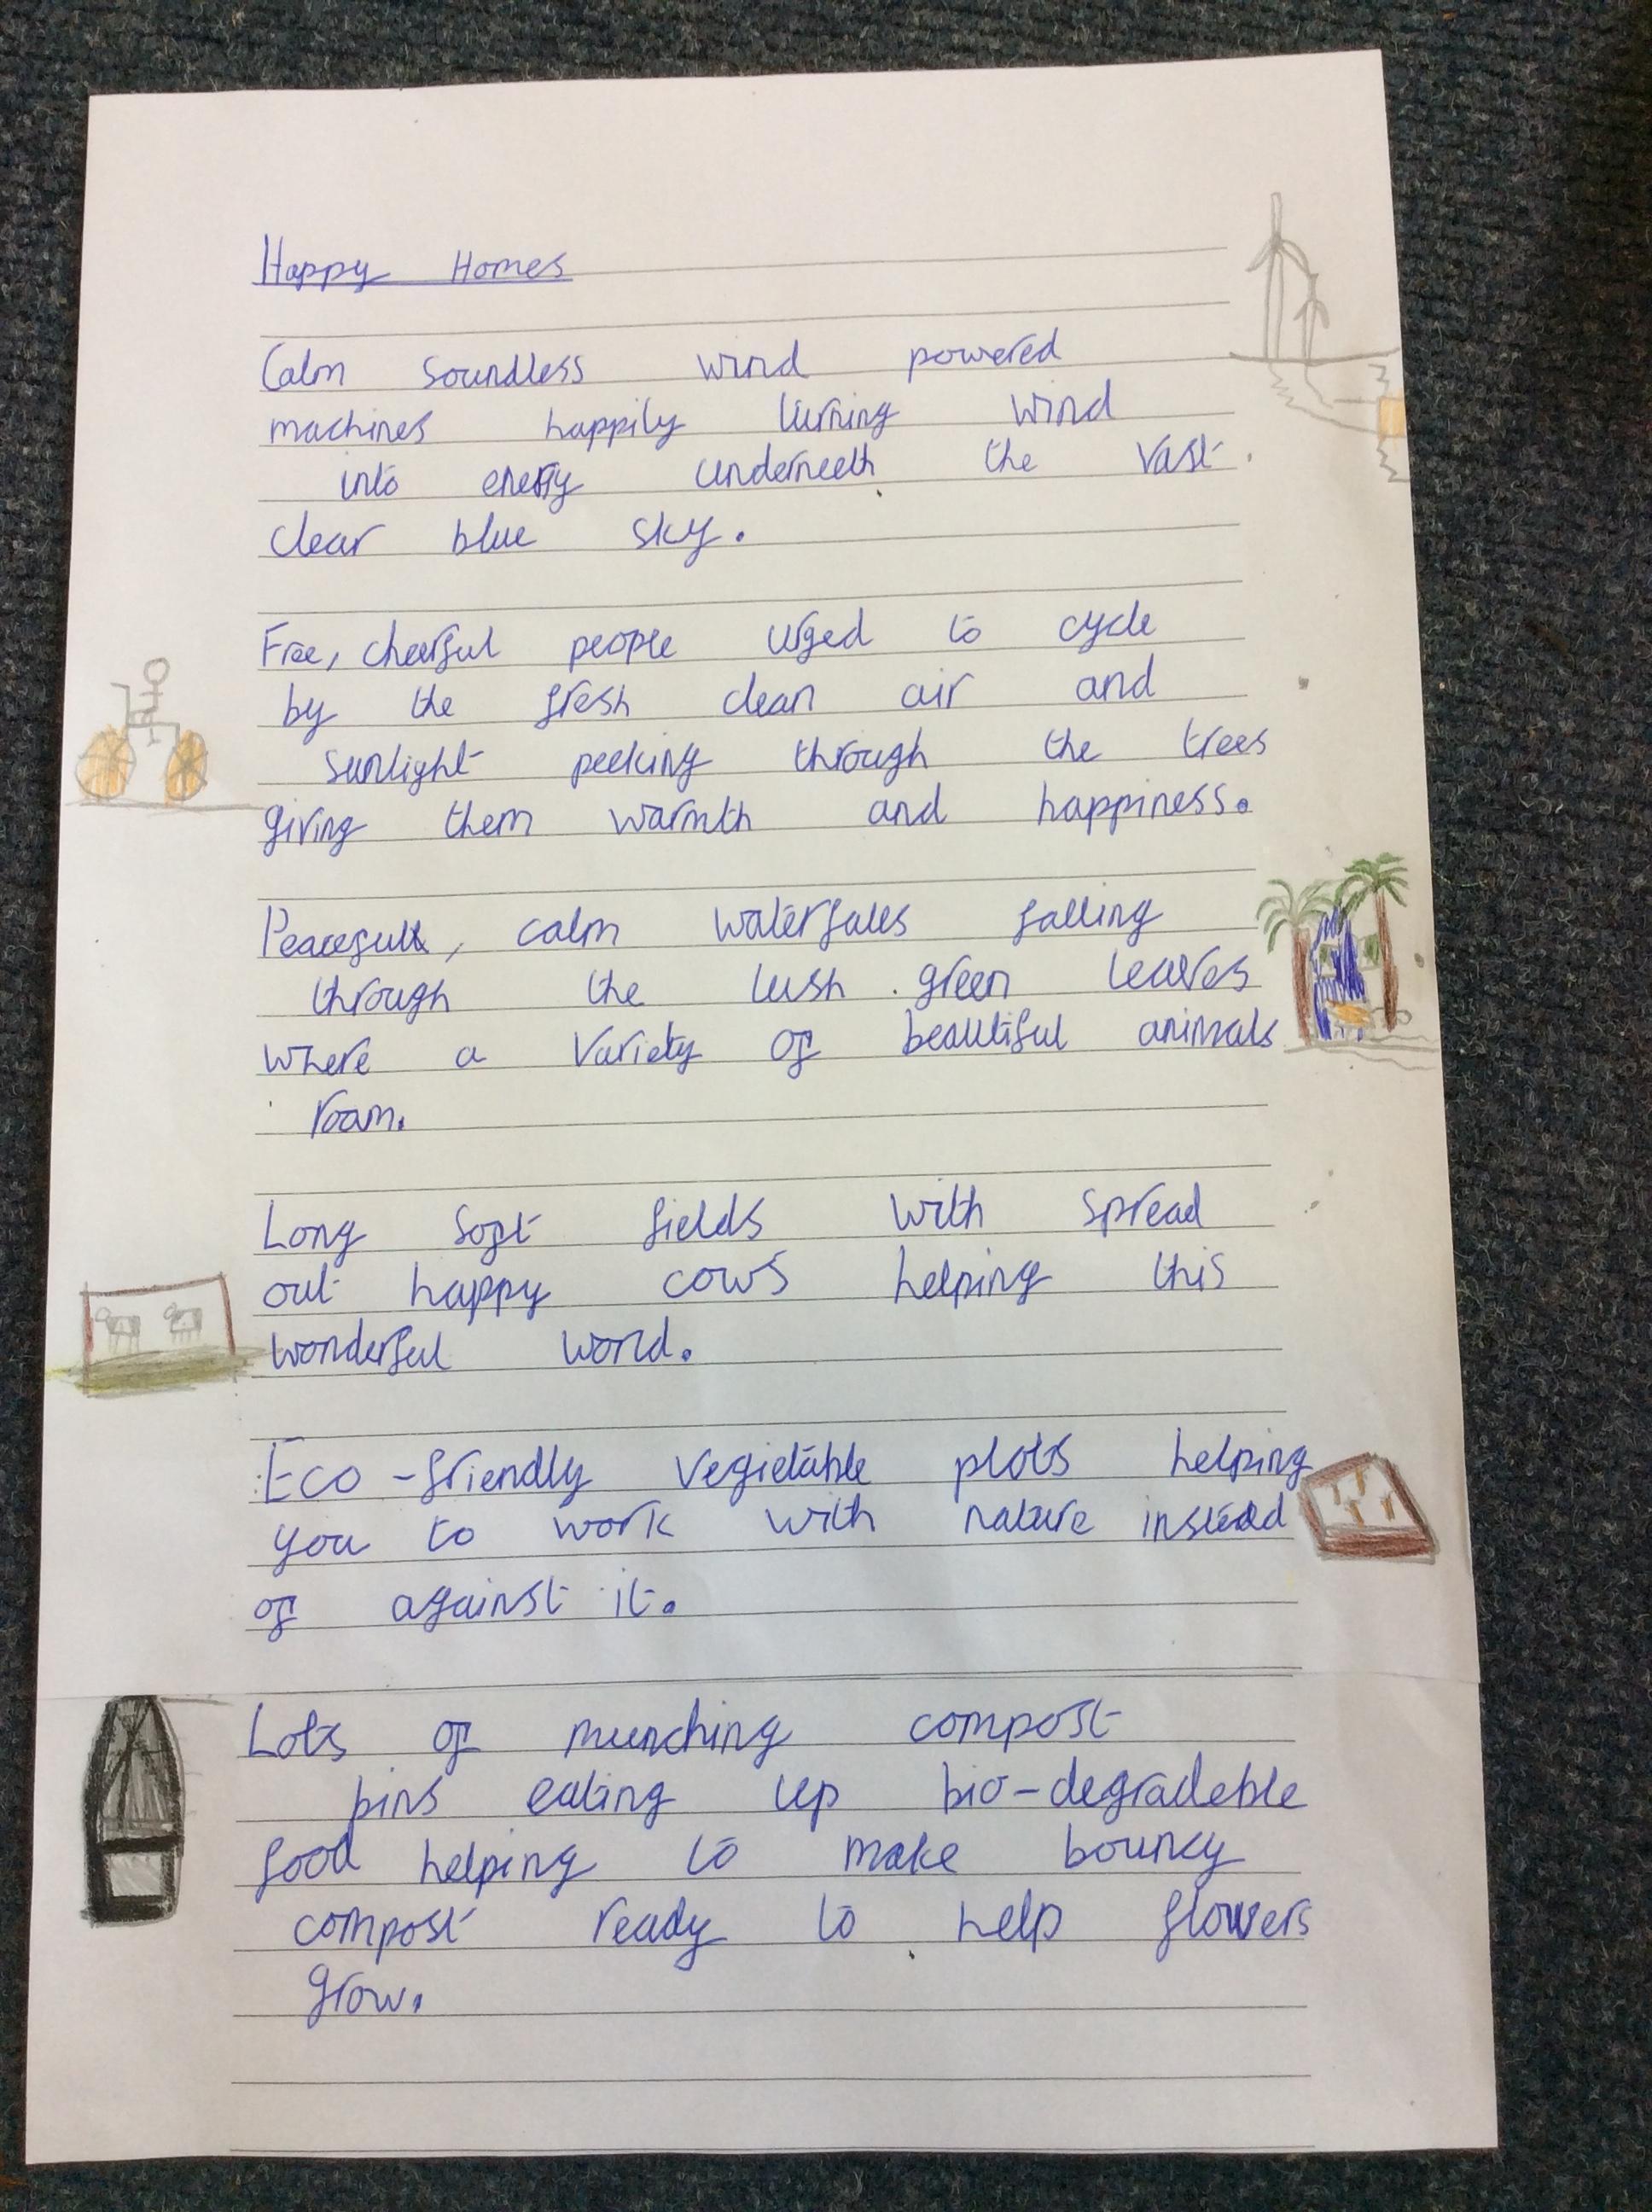 Happy Homes
Calm soundless wind powered
machines happily turning wind
into energy underneeth the vast
clear blue sky.
Free, cheerful people urged to cycle
by the fresh clean air and
sunlight peeking through the trees
giving them warmth and happiness.
Peacefull, calm waterfalls falling
through the lush green leaves
where a variety of beautiful animals
roam.
Long soft fields with spread
out happy cows helping this
wonderful world.
Eco-friendly vegietable plots helping
you to work with nature instead
of against it.
Lots of munching compost
bins eating up bio-degradeble
food helping to make bouncy
compost ready to help flowers
grow.